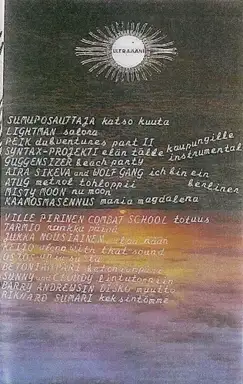 SUMUPOSAUTTAJA katso kuuta
LIGHTMAN salora
PEIK dubventures part II
SYNTAX-PROJEKTI elän tälle kaupungille
GUGGENSIZER beach party instrumental
AIRA SIKEVA and WOLF GANG ich bin ein berliner
ATUG metrol tohloppii
MISTY MOON nu moon
KAAMOSMASENNUS maria magdalena
VILLE PIRINEN COMBAT SCHOOL totuus
TARMIO rankka päivä
JUKKA NOUSIAINEN
with that sound
SUNNY and CLOUDY
BARRY ANDREWSIN DISKO
RIKHARD SUMARI keksintömme